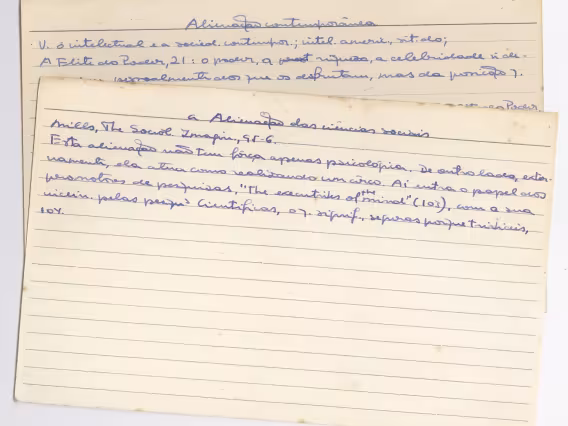 Alienação contemporânea
V. o intelectual e a socied. contempor.; intel. americ., sit. do;
A Elite do Poder, 21: o poder, a riqueza, a celebridade ñ de-
pessoalmente dos que os desfrutam, mas da posição q.
a Alienação das ciências sociais
Mills, The Sociol. Imagin., 95-6.
Esta alienação não tem força apenas psicológica. De outro lado, exter-
namente, ela atua como realizando um circo. Aí entra o papel dos
promotores de pesquisas, "The executives of the mind" (103), com a sua
pelas pesqs científicas, o q. signif., seguras porque triviais,
104.